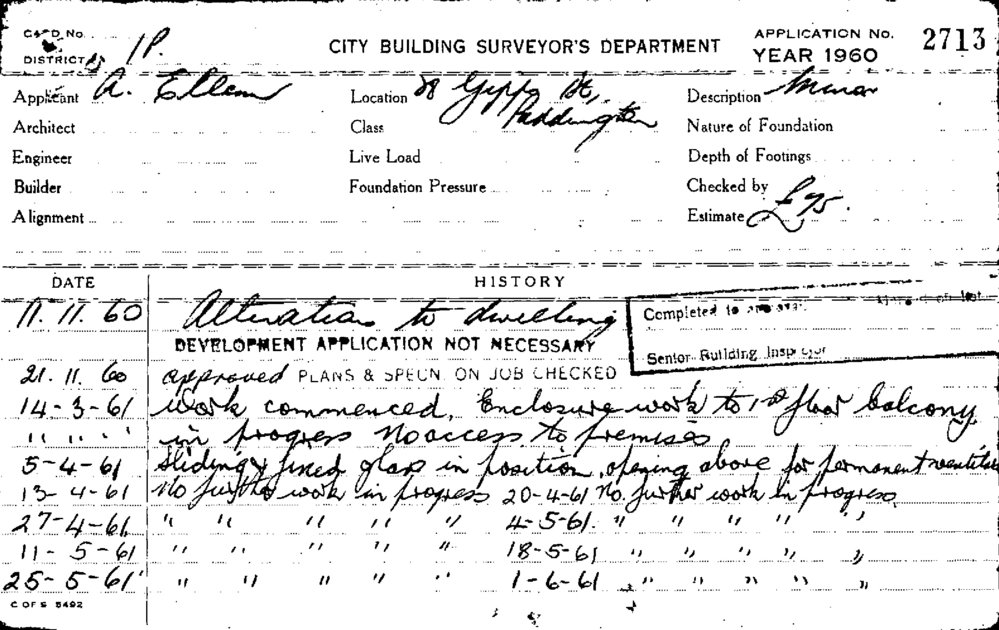 CARD No.
DISTRICT 1P.
CITY BUILDING SURVEYOR'S DEPARTMENT
APPLICATION No. 2713
YEAR 1960
Applicant A. Ellem Location 28 Gipps St, Description Minor
Paddington
Architect Class Nature of Foundation
Engineer Live Load Depth of Footings
Builder Foundation Pressure Checked by
Alignment Estimate £75.
DATE HISTORY
11. 11. 60 Alteration to dwelling
Completed to
DEVELOPMENT APPLICATION NOT NECESSARY
Senior Building Inspector
21. 11. 60 approved PLANS & SPECN. ON JOB CHECKED
14-3-61 Work commenced. Enclosure work to 1st floor balcony
" " " in progress No access to premises
5-4-61 Sliding & fixed glass in position, opening above for permanent ventilation
13-4-61 No further work in progress 20-4-61 No further work in progress
27-4-61 " " " " " 4-5-61. " " " " "
11-5-61 " " " " " 18-5-61 " " " " "
25-5-61 " " " " " 1-6-61 " " " " "
C OF S 5492